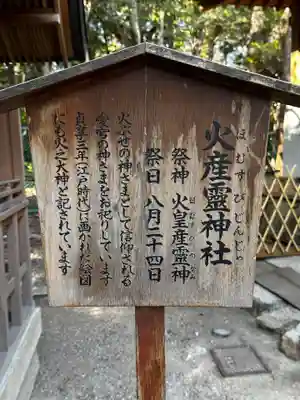 火産靈神社
ほむすびじんじゃ
祭神　火皇産靈神
ほむすびのかみ
祭日　八月二十四日
火ぶせの神さまとして信仰される
愛宕の神さまをお祀りしています
貞享三年(江戸時代)に画かれた絵図
にも火之大神と記されています